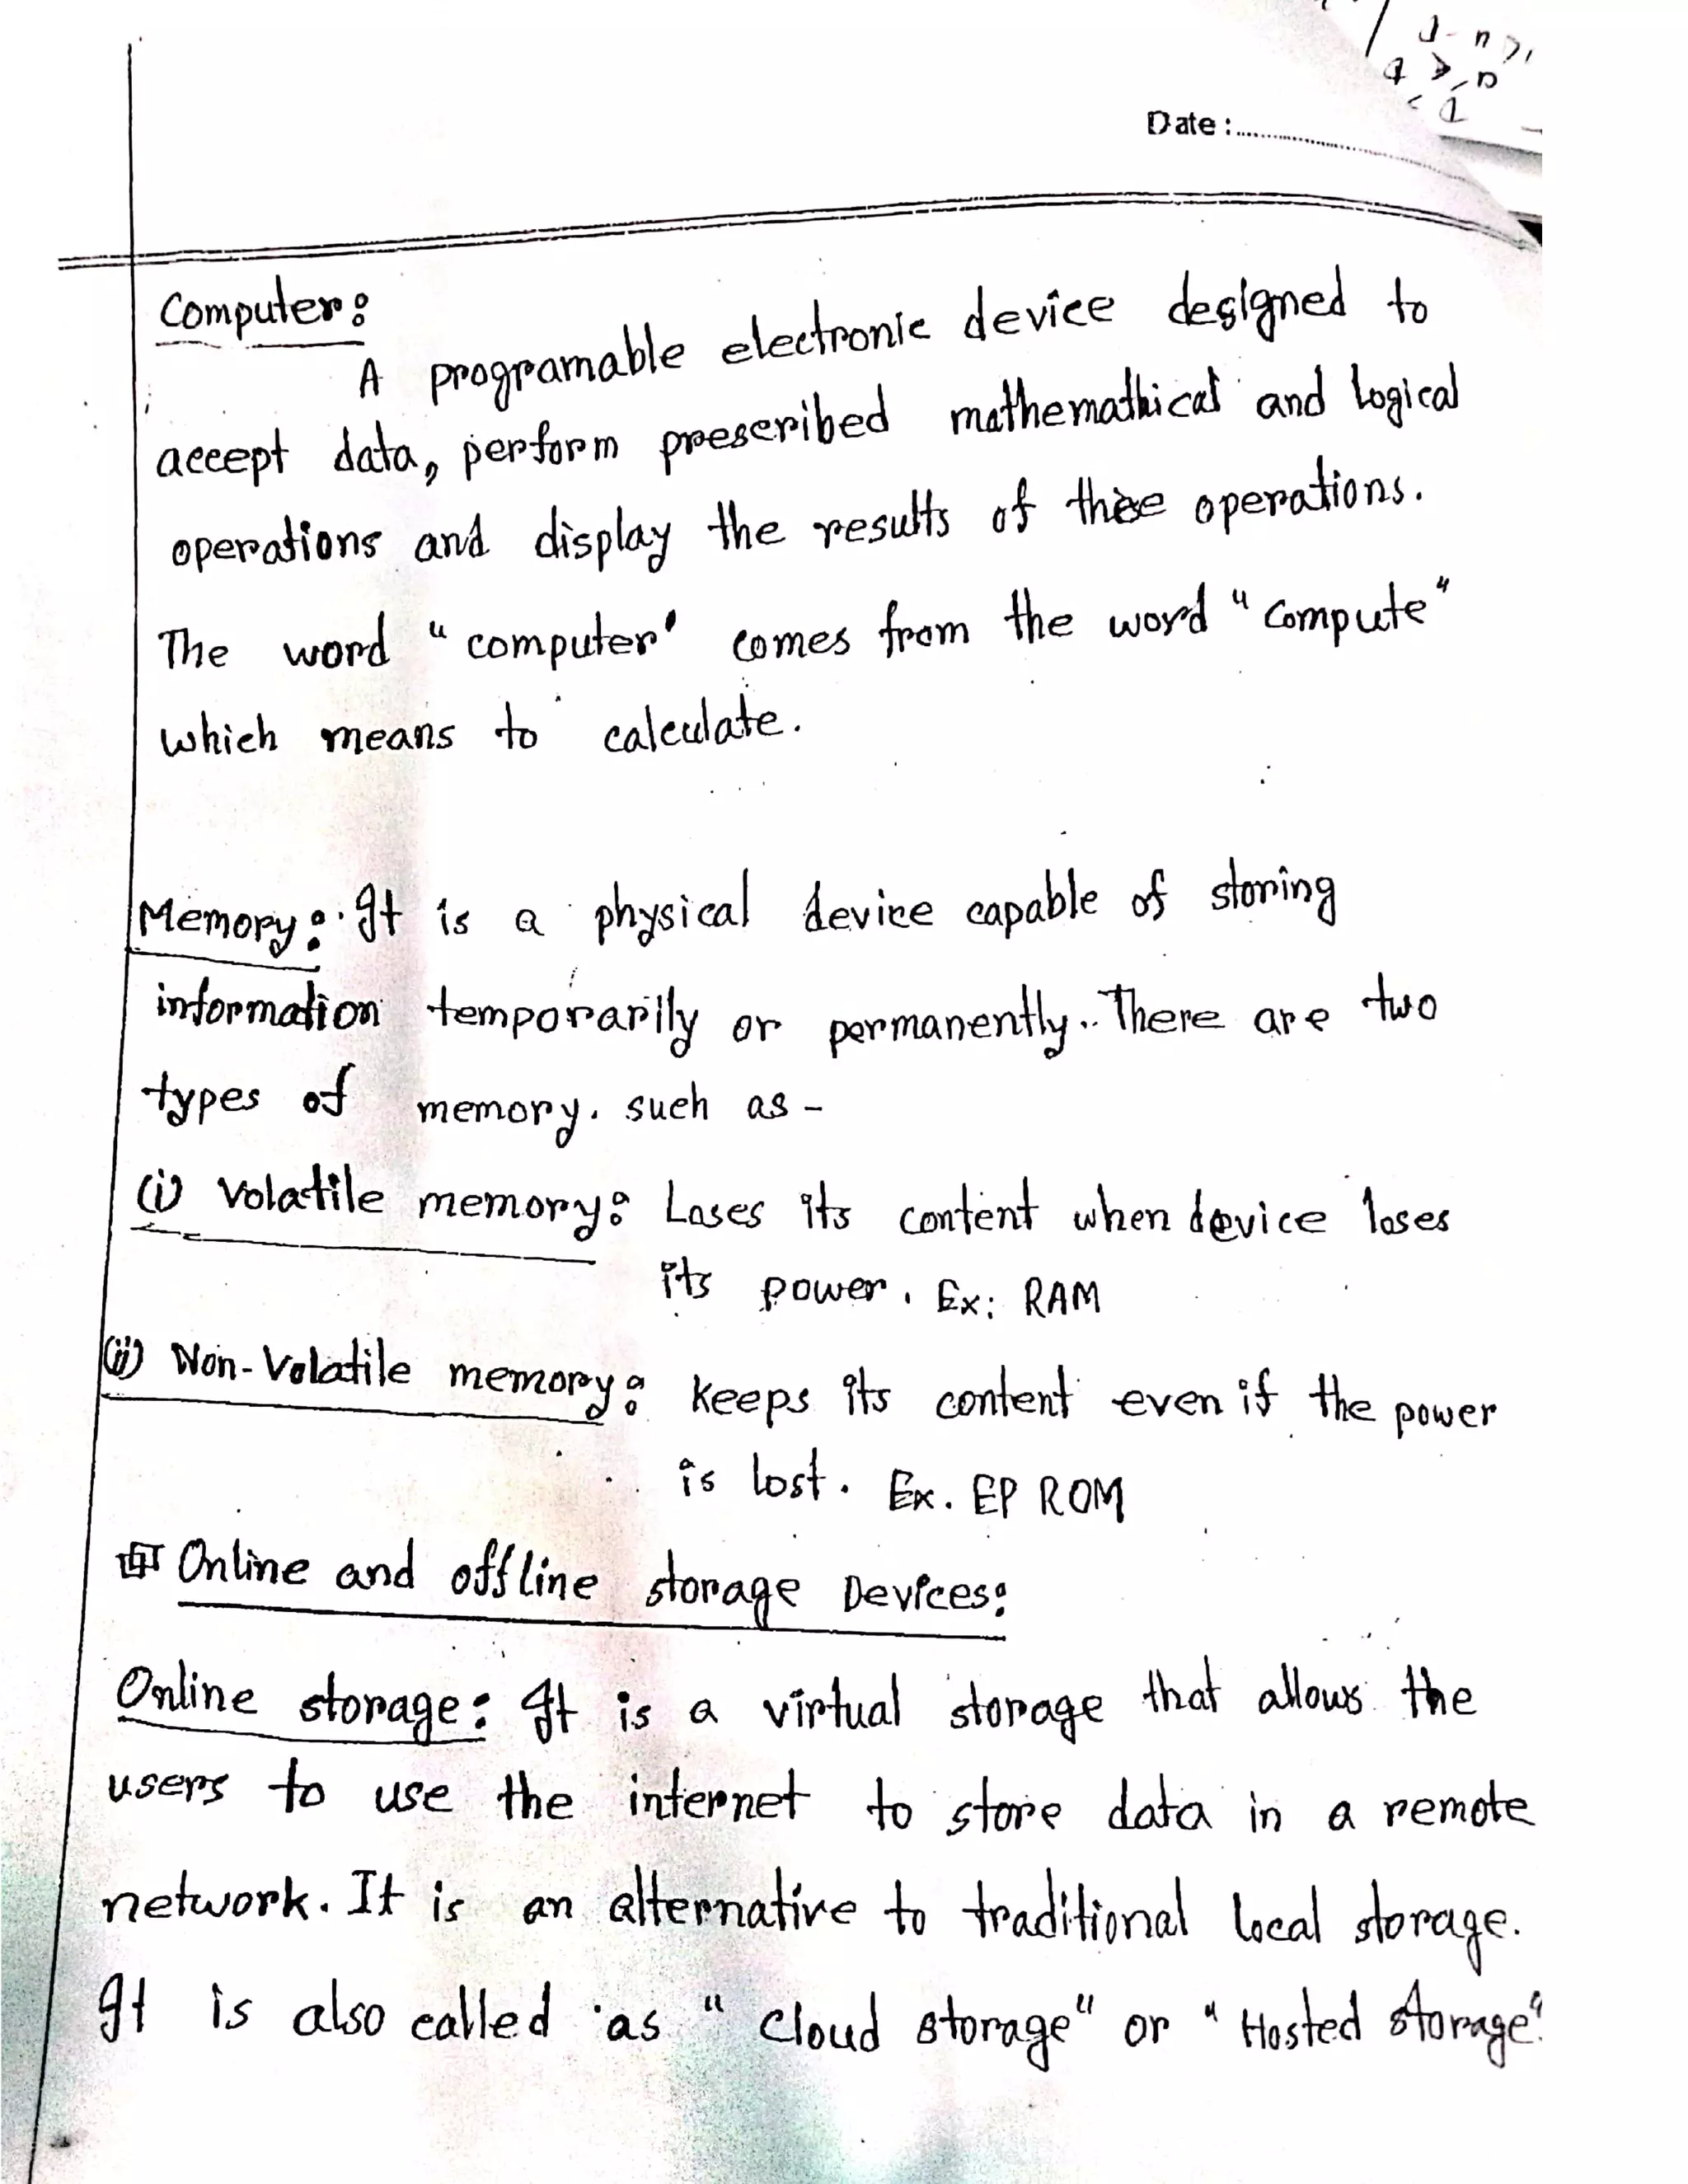 Date :
Computer:
A programable electronic device designed to
accept data, perform prescribed mathemathical and logical
operations and display the results of these operations.
The word "computer' comes from the word "compute"
which means to calculate.
Memory: It is a physical device capable of storing
information temporarily or permanently. There are two
types of memory. such as -
(i) Volatile memory: Loses its content when device loses
its power. Ex: RAM
(ii) Non-Volatile memory: Keeps its content even if the power
is lost. Ex. EP ROM
Online and offline storage Devices:
Online storage: It is a virtual storage that allows the
users to use the internet to store data in a remote
network. It is an alternative to traditional local storage.
It is also called as "Cloud storage" or "Hosted storage".